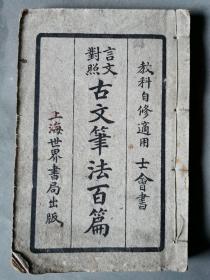 教科自修適用 士會書
言文
對照
古文筆法百篇
上海世界書局出版